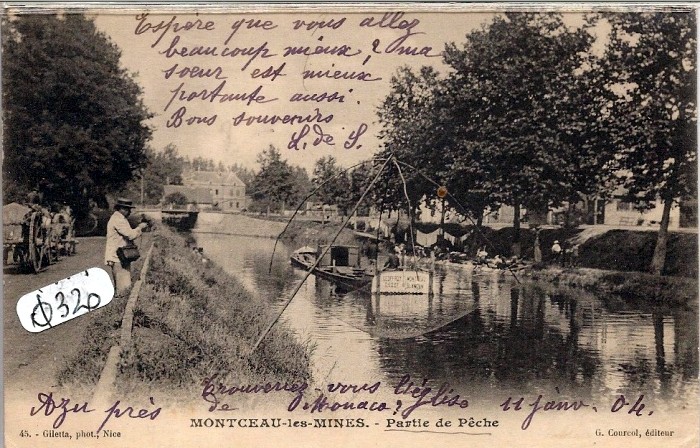 Espère que vous allez
beaucoup mieux? ma
soeur est mieux
portante aussi.
Bons souvenirs
L. de S.
320
Trouveriez vous l'église
Azu près de Monaco? 11 janv. 04.
MONTCEAU-les-MINES. - Partie de Pêche
45. - Giletta, phot., Nice
G. Courcol, éditeur